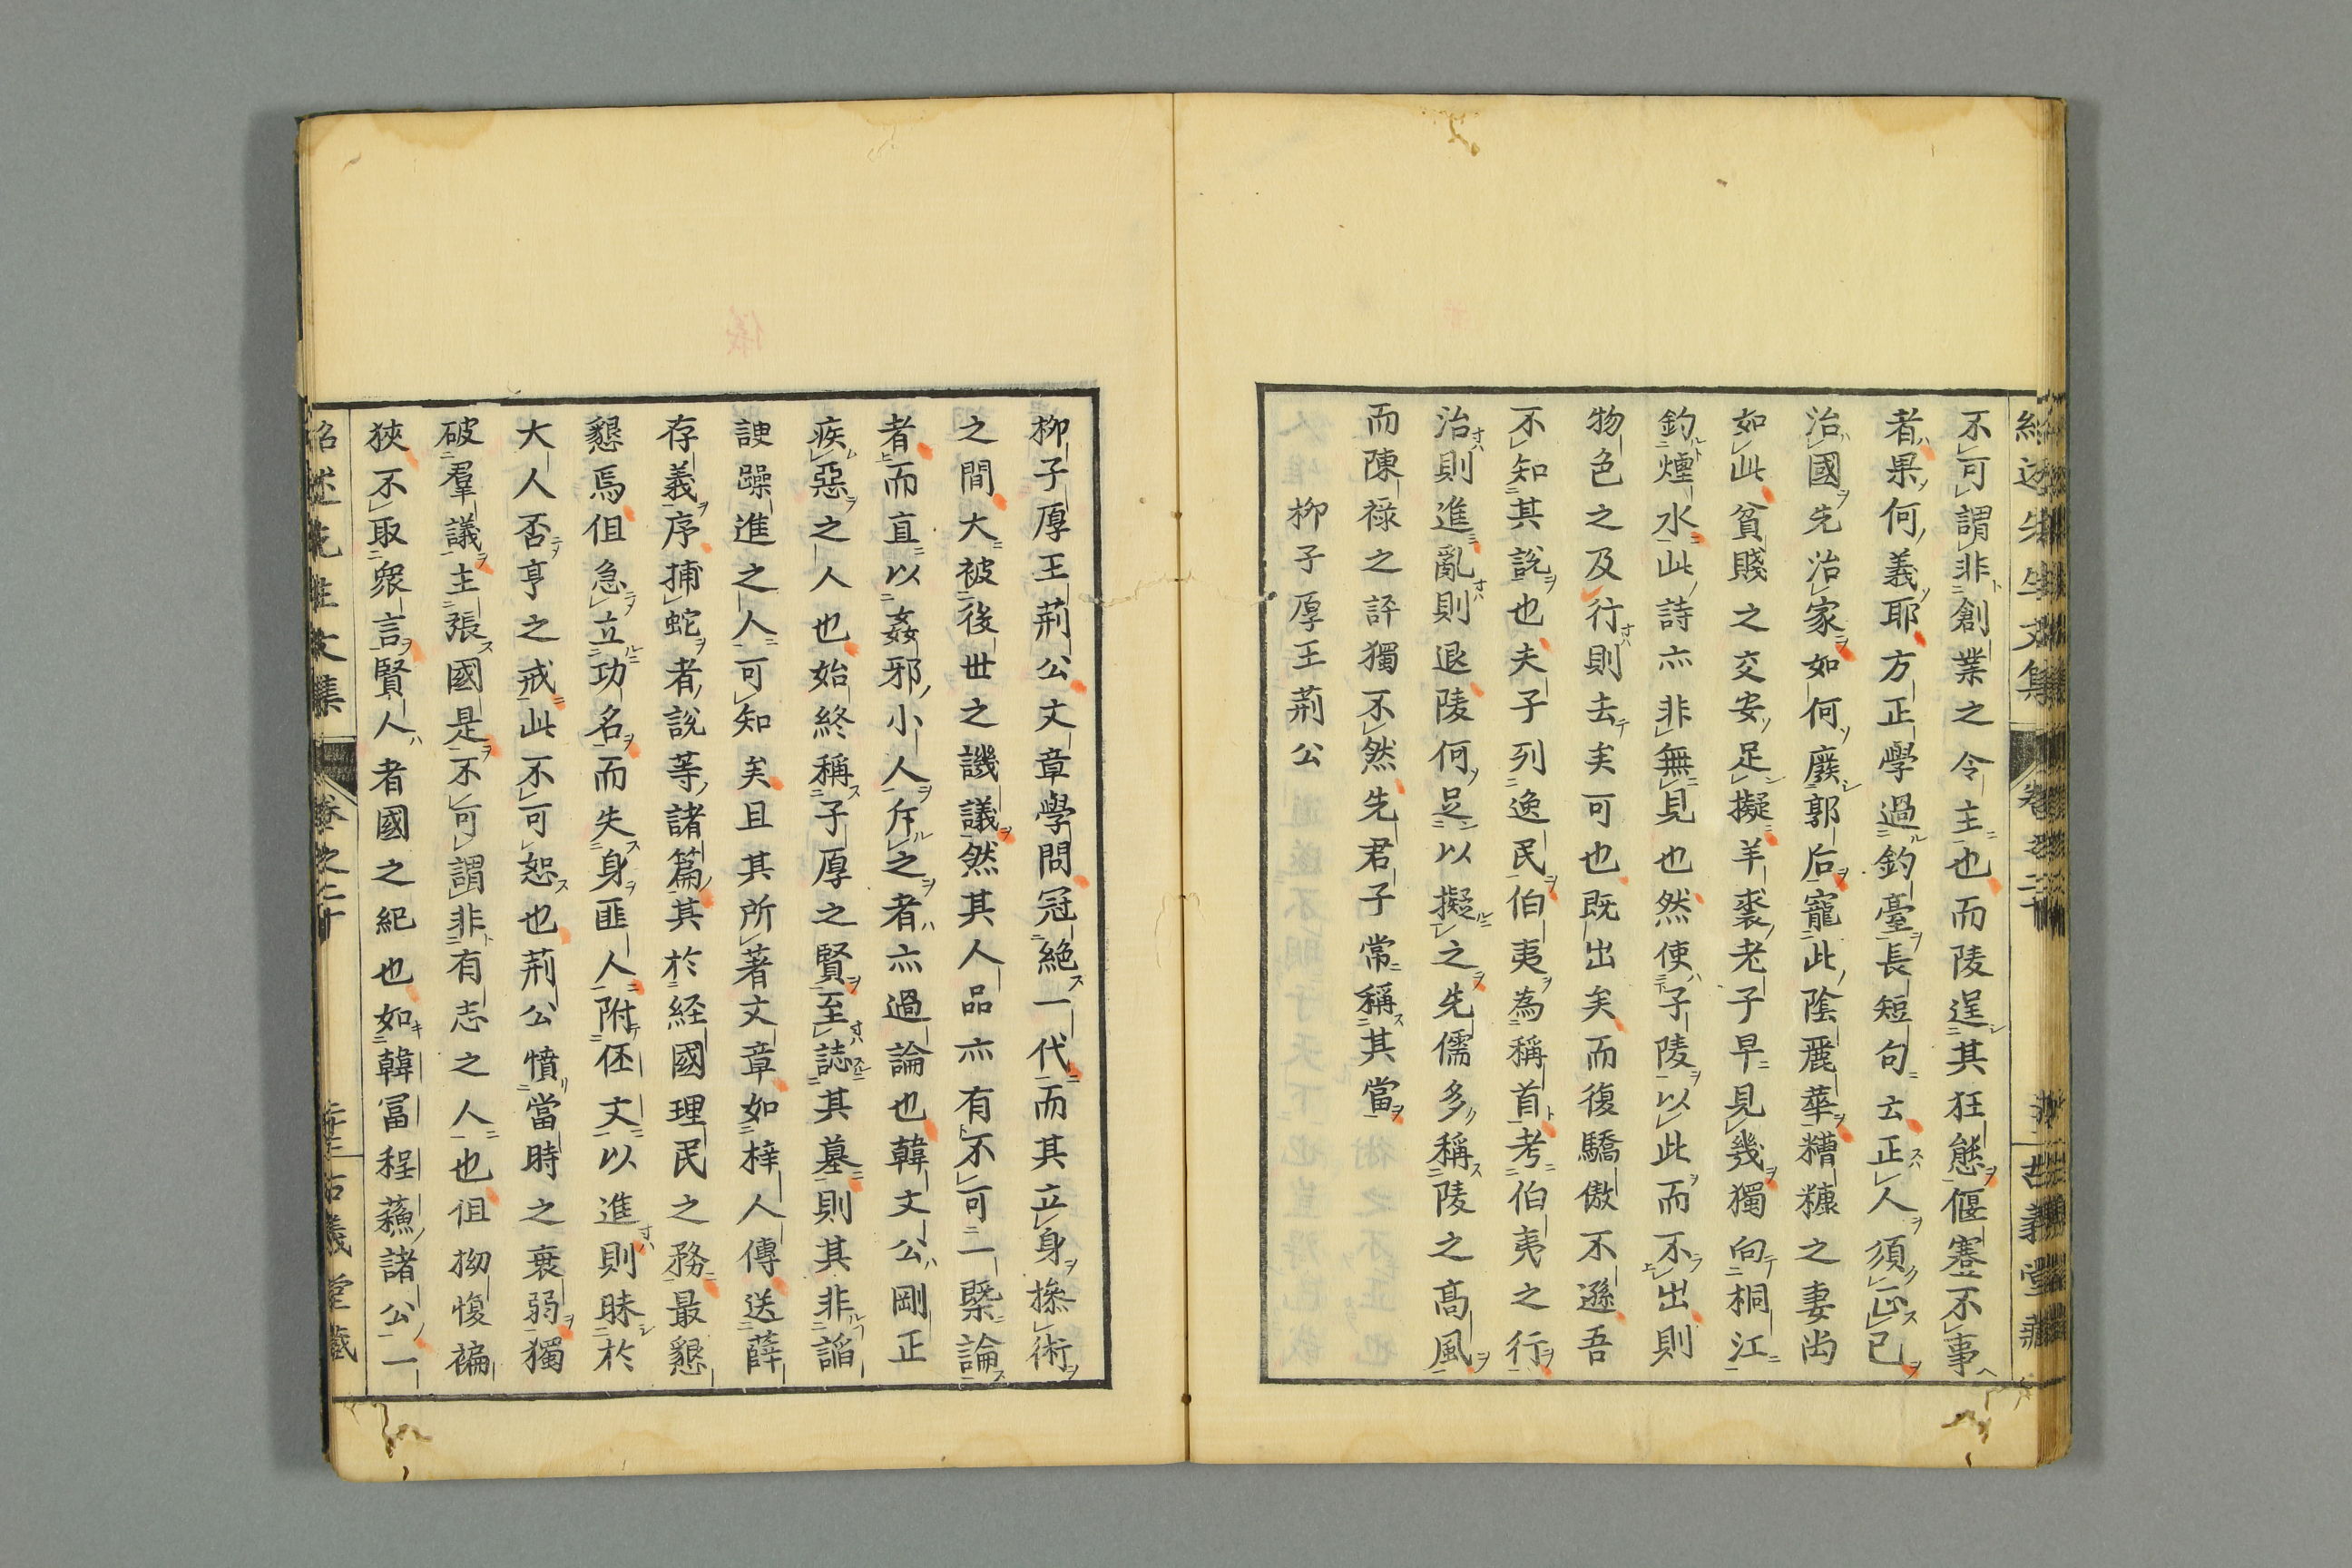 不可謂非創業之令主也而陵逞其狂態偃蹇不事
者果何義耶方正學過釣臺長短句云正人須正己
治國先治家如何廢郭后寵此陰麗華糟糠之妻尚
如此貧賤之交安足擬羊裘老子早見幾獨向桐江
釣煙水此詩亦非無見也然使子陵以此而不出則
物色之及行則去矣可也既出矣而復驕傲不遜吾
不知其說也夫子列逸民伯夷為稱首考伯夷之行
治則進亂則退陵何足以擬之先儒多稱陵之高風
而陳祿之評獨不然先君子常稱其當
柳子厚王荊公
柳子厚王荊公文章學問冠絕一代而其立身操術
之間大被後世之譏議然其人品亦有不可一槩論
者而直以姦邪小人斥之者亦過論也韓文公剛正
疾惡之人也始終稱子厚之賢至誌其墓則其非諂
諛躁進之人可知矣且其所著文章如梓人傳送薛
存義序捕蛇者說等諸篇其於経國理民之務最懇
懇焉但急立功名而失身匪人附伾文以進則昧於
大人否亨之戒此不可恕也荊公憤當時之衰弱獨
破羣議主張國是不可謂非有志之人也但拗愎褊
狹不取衆言賢人者國之紀也如韓冨程蘓諸公一
紹述先生文集 卷之二十 古義堂藏